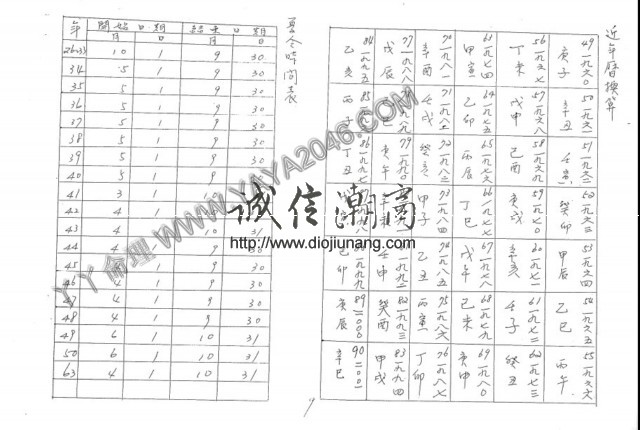 近年曆換算
49 一九六〇 庚子
50 一九六一 辛丑
51 一九六二 壬寅
52 一九六三 癸卯
53 一九六四 甲辰
54 一九六五 乙巳
55 一九六六 丙午
56 一九六七 丁未
57 一九六八 戊申
58 一九六九 己酉
59 一九七〇 庚戌
60 一九七一 辛亥
61 一九七二 壬子
62 一九七三 癸丑
61 一九七四 甲寅
64 一九七五 乙卯
65 一九七六 丙辰
66 一九七七 丁巳
67 一九七八 戊午
68 一九七九 己未
69 一九八〇 庚申
70 一九八一 辛酉
71 一九八二 壬戌
72 一九八三 癸亥
73 一九八四 甲子
74 一九八五 乙丑
75 一九八六 丙寅
76 一九八七 丁卯
77 一九八八 戊辰
79 一九九〇 庚午
壬申
82 一九九三 癸酉
83 一九九四 甲戌
84 一九九五 乙亥
85 丙子
86 一九九七 丁丑
一九九九 己卯
89 二〇〇〇 庚辰
90 二〇〇一 辛巳
夏令時間表
年 開始日期 結束日期
月 日 月 日
10 1 9 30
34 5 1 9 30
35 5 1 9 30
36 5 1 9 30
37 5 1 9 30
38 5 1 9 30
39 5 1 9 30
40 5 1 9
41 3 1
42 4 1
43 4 1
44 4 1 9 30
45 4 1 9 30
46 4 1 9 30
47 4 1 9 30
48 4 1 9 30
49 6 1 10 31
50 6 1 10 31
63 4 1 10 31
诚信潮商
http://www.diojiunang.com
丫丫倫理 WWW.YAYA2046.COM